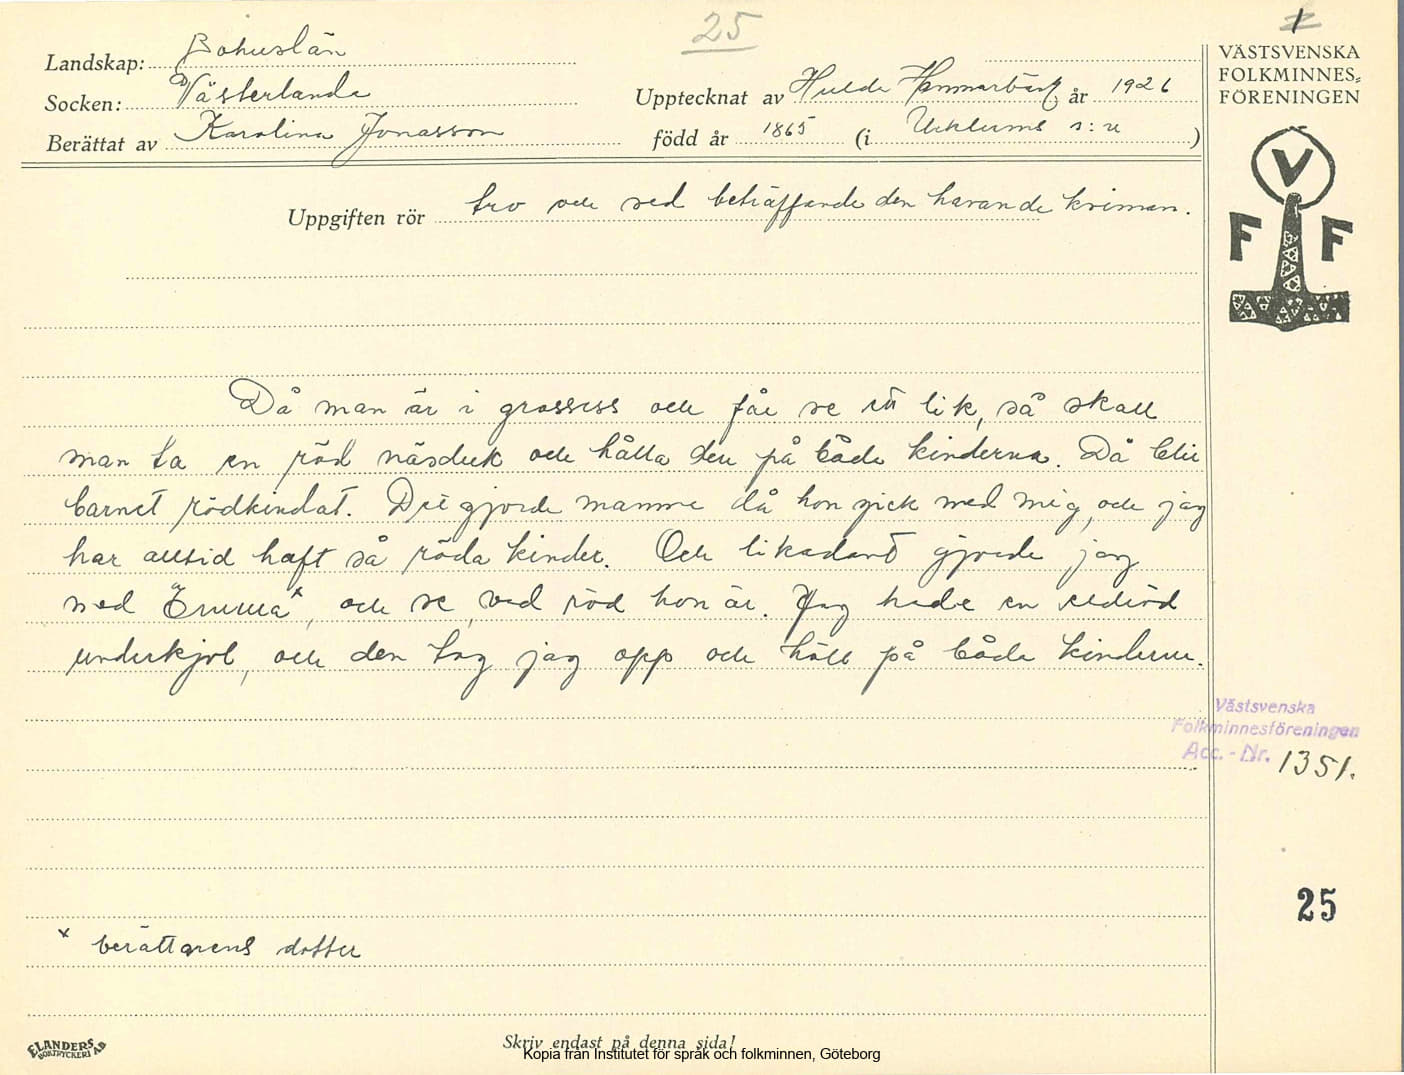 25
1
Landskap: Bohuslän
Socken: Västerlanda
Upptecknat av Hulda Hammarbäck år 1926
Berättat av Karolina Jonasson
född år 1865 (i Ucklums s:n)
VÄSTSVENSKA
FOLKMINNES-
FÖRENINGEN
V
F F
Uppgiften rör tro och sed beträffande den havande kvinnan.
Då man är i grossess och får se ett lik, så skall
man ta en röd näsduk och hålla den på båda kinderna. Då blir
barnet rödkindat. Det gjorde mamma då hon gick med mig, och jag
har alltid haft så röda kinder. Och likadant gjorde jag
med Emma x, och se, vad röd hon är. Jag hade en eldröd
underkjol, och den tog jag opp och höll på båda kinderna.
Västsvenska
Folkminnesföreningen
Acc. - Nr. 1351.
25
x berättarens dotter
ELANDERS
BOKTRYCKERI AB
Skriv endast på denna sida!
Kopia från Institutet för språk och folkminnen, Göteborg